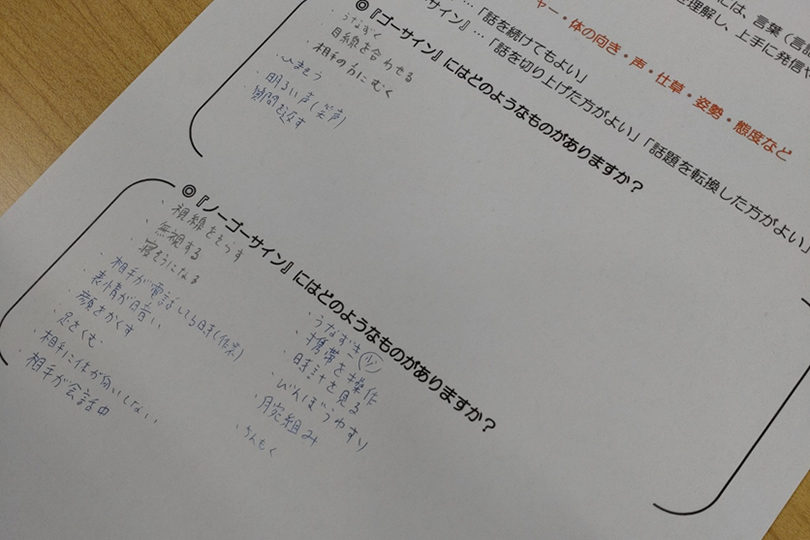 には、言葉（言語
を理解し、上手に発信や
ャー・体の向き・声・仕草・姿勢・態度など
サイン』…「話を続けてもよい」
ーサイン』…「話を切り上げた方がよい」「話題を転換した方がよい」
◎『ゴーサイン』にはどのようなものがありますか？
・うなずく
・目線を合わせる
・相手の方にむく
・明るい声(笑声)
・質問を返す
◎『ノーゴーサイン』にはどのようなものがありますか？
・視線をそらす
・無視する
・寝そうになる
・相手が電話してる時(作業)
・表情が暗い
・顔をかくす
・足をくむ
・相手に体が向いてない
・相手が会話中
・うなずき 少
・携帯を操作
・時計を見る
・びんぼうゆすり
・腕組み
・ちんもく